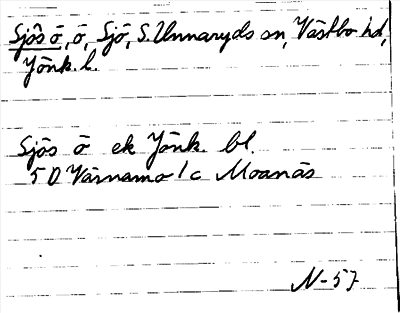 Sjös ö, ö, Sjö, S. Unnaryds sn, Västbo hd,
Jönk. l.
Sjös ö ek Jönk. bl.
5 D Värnamo 1 c Moanäs
N-57